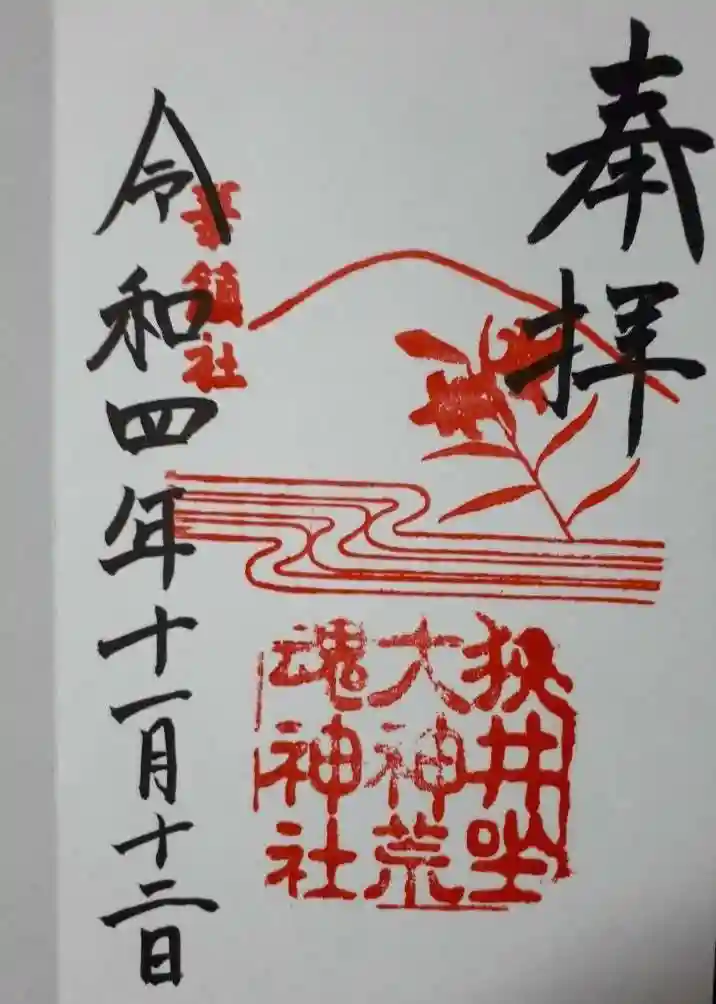 奉拝
狭井坐
大神荒
魂神社
華鎮社
令和四年十一月十二日